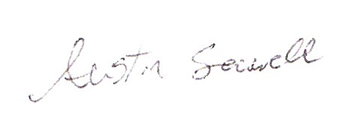 Austin Sewell